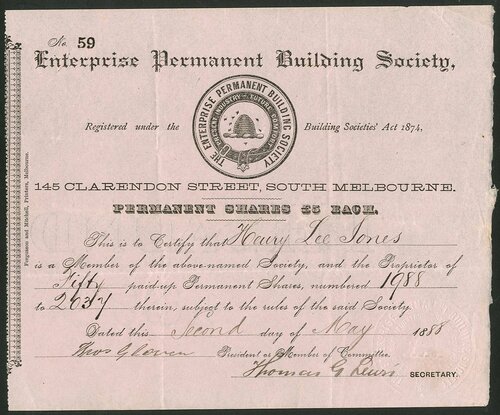 No. 59
Enterprise Permanent Building Society,
THE ENTERPRISE PERMANENT BUILDING SOCIETY
PRESENT INDUSTRY FUTURE COMFORT
Registered under the Building Societies' Act 1874.
145 CLARENDON STREET, SOUTH MELBOURNE.
PERMANENT SHARES £5 EACH.
This is to Certify that Henry Lee Jones
is a Member of the above-named Society, and the Proprietor of
Fifty paid-up Permanent Shares, numbered 1988
to 2037 therein, subject to the rules of the said Society.
Dated this Second day of May 1888
Thos Glaven President or Member of Committee.
Thomas G Lewis SECRETARY.
Fergusson and Mitchell, Printers, Melbourne